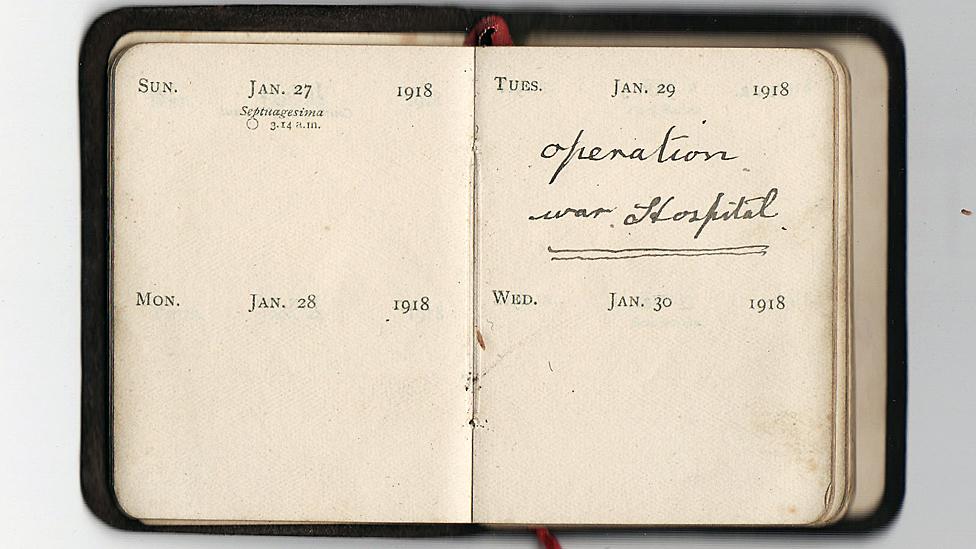 SUN. JAN. 27 1918
Septuagesima
○ 3.14 a.m.
MON. JAN. 28 1918
TUES. JAN. 29 1918
operation
war Hospital
WED. JAN. 30 1918